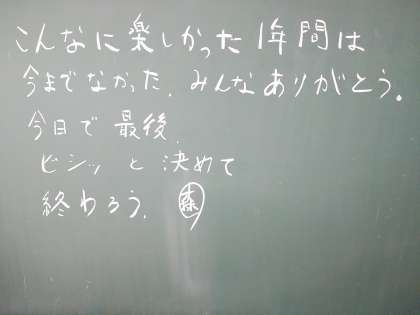 こんなに楽しかった1年間は
今までなかった. みんなありがとう。
今日で 最後.
ビシッ と 決めて
終わろう. 森